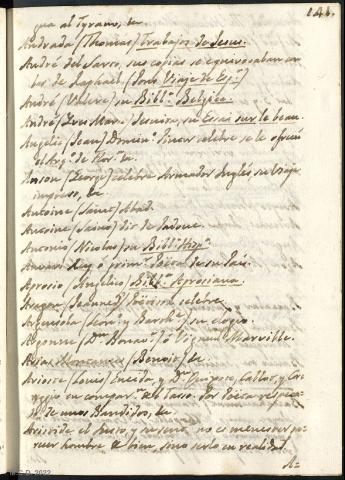 141.
que al Tyrano, &c.
Andrada (Thomas) Trabajos de Jesus.
André del Sarto, sus copias se equivocaban con
las de Raphael (Pons Viaje de Esp.ª)
André (Valere) su Bibl.ª Belgica.
André (Ives Mar.) Jesuita, su Essai sur le beau.
Angelis (Jean) Domin.º Pintor celebre se le ofreció
el Arz.º de Flor.ª &c.
Anson (George) celebre Armador Inglés su viaje
impreso, &c.
Antoine (Saint) Abad.
Antoine (Saint) dit de Padoue.
Antonio (Nicolas) su Bibl.ª Hisp.ª
Rey ó prim.º de su País.
Aprosio (Angelico) Bibl.ª Aprosiana.
Aragon (Jeanne d') celebre.
Argensola (Leon.º y Barth.é) su elogio.
Argonne (D.n Bonav.ª) ó Vigneul Marville.
Arias Montanus (Benoit) &c.
Ariosto (Louis) Eneida, y D.n Quixote, Callot, y
en compar.n del Tasso. Por Poeta
de unos Banditos, &c.
Aristide el Justo, y no es menester
hombre de bien, sino serlo en realidad.
A=